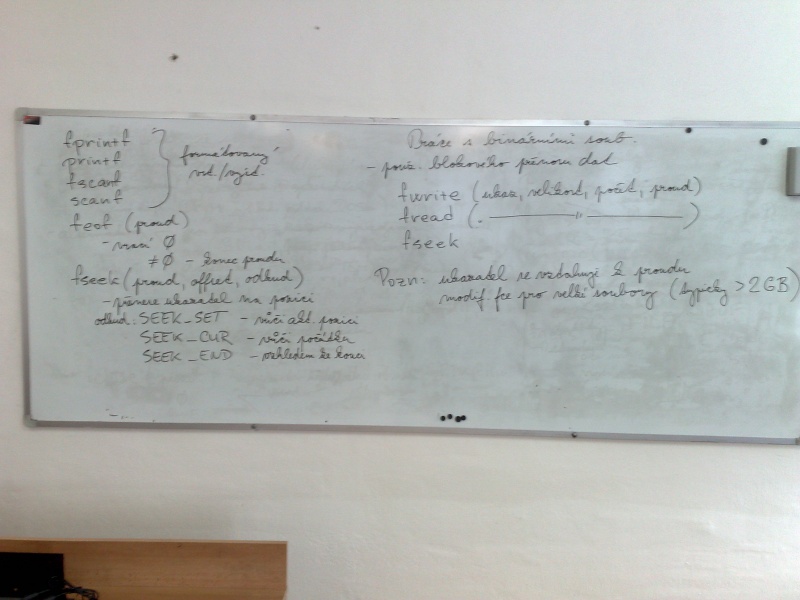 fprintf
printf
fscanf
scanf
formátovaný
vst./výst.
feof (proud)
- vrací Ø
≠ Ø - konec proudu
fseek (proud, offset, odkud)
- přenese ukazatel na pozici
odkud: SEEK_SET - vůči akt. pozici
SEEK_CUR - vůči počátku
SEEK_END - vzhledem ke konci
Práce s binárními soub.
- použ. blokového přenosu dat
fwrite (ukaz, velikost, počet, proud)
fread ( — " — )
fseek
Pozn: ukazatel se vztahuje k proudu
modif. fce pro velké soubory (typicky > 2GB)